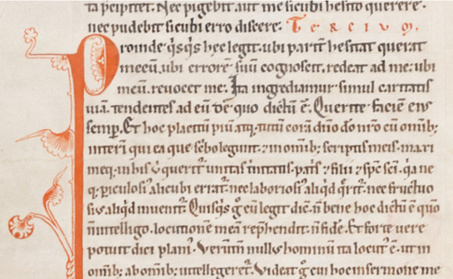 ta percipiet. Nec pigebit aut me sicubi hesito querere.
nec pudebit sicubi erro discere. Tercium.
Proinde q̇sq̇s hec legit. ubi parit̄ hesitat querat
mecū. ubi errorē suū cognoscit. redeat ad me; ubi
meū. reuocet me. Ita ingrediamur simul caritatis
uiā. tendentes ad eū de quo dictū ē. Querite faciē eiꝰ
semp̲. Et hoc placitū piū atq; tutū corā dn̄o dō nr̄o cū om̄ib;
inteꝝ qui ea que scͥbo legunt. ⁊ in om̄ib; scriptis meis. maxi
meq; in his uͥ queritᷣ unitas tͥnitatis. patͥs ⁊ filii ⁊ sp̄c sc̄i. q̇a ne
q; p̲iculosiᷤ alicubi erratᷣ. nec laboriosiᷤ aliqͥd q̄ritᷣ. nec fructuo
siᷤ aliqͥd inuenitᷣ. Quisq̇s gͦ cū legit dic̄. n̄ bene hoc dictū ē qm̄o
n̄ intelligo. locutionē meā rep̲hendit. n̄ fidē. Et forte uere
potuit dici planiᷤ. Verūtn̄ nullꝰ hominū ita locutᷤ ē. ut in
om̄ib; ab om̄ib; intellegeretᷣ. Videat gͦ cui hoc in sermone me